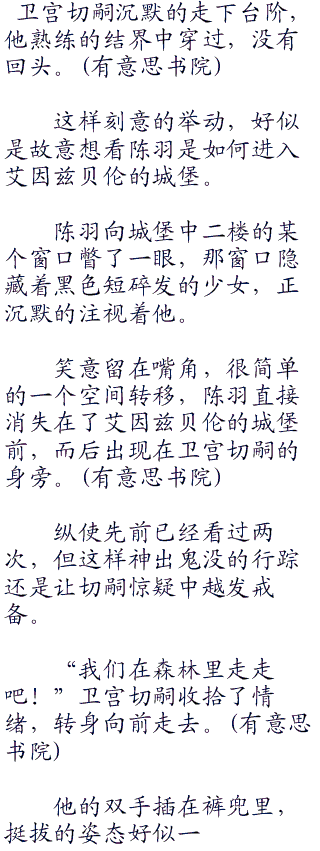 卫宫切嗣沉默的走下台阶，
他熟练的结界中穿过，没有
回头。(有意思书院)
这样刻意的举动，好似
是故意想看陈羽是如何进入
艾因兹贝伦的城堡。
陈羽向城堡中二楼的某
个窗口瞥了一眼，那窗口隐
藏着黑色短碎发的少女，正
沉默的注视着他。
笑意留在嘴角，很简单
的一个空间转移，陈羽直接
消失在了艾因兹贝伦的城堡
前，而后出现在卫宫切嗣的
身旁。(有意思书院)
纵使先前已经看过两
次，但这样神出鬼没的行踪
还是让切嗣惊疑中越发戒
备。
“我们在森林里走走
吧！”卫宫切嗣收拾了情
绪，转身向前走去。(有意思
书院)
他的双手插在裤兜里，
挺拔的姿态好似一